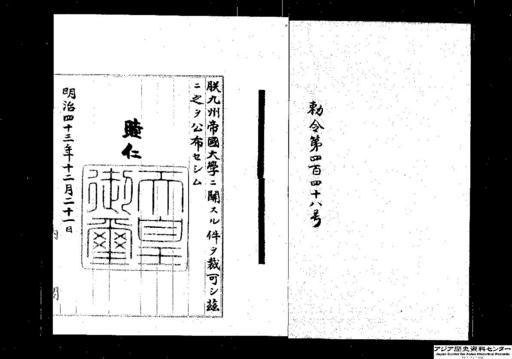 勅令第四百四十八号
朕九州帝國大學ニ關スル件ヲ裁可シ茲
ニ之ヲ公布セシム
睦仁
天皇御璽
明治四十三年十二月二十一日
内閣
アジア歴史資料センター
Japan Center for Asian Historical Records